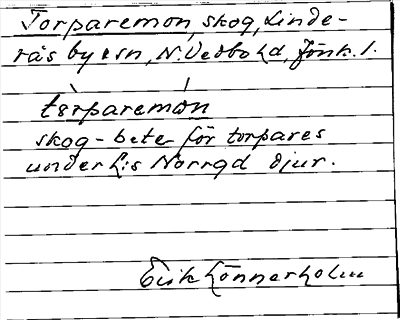 Torparemon, skog, Linde-
rås by o sn, N. Vedbo hd, Jönk. l.
tòrparemón
skog - bete för torpares
under L:s Norrgd djur.
Erik Lönnerholm